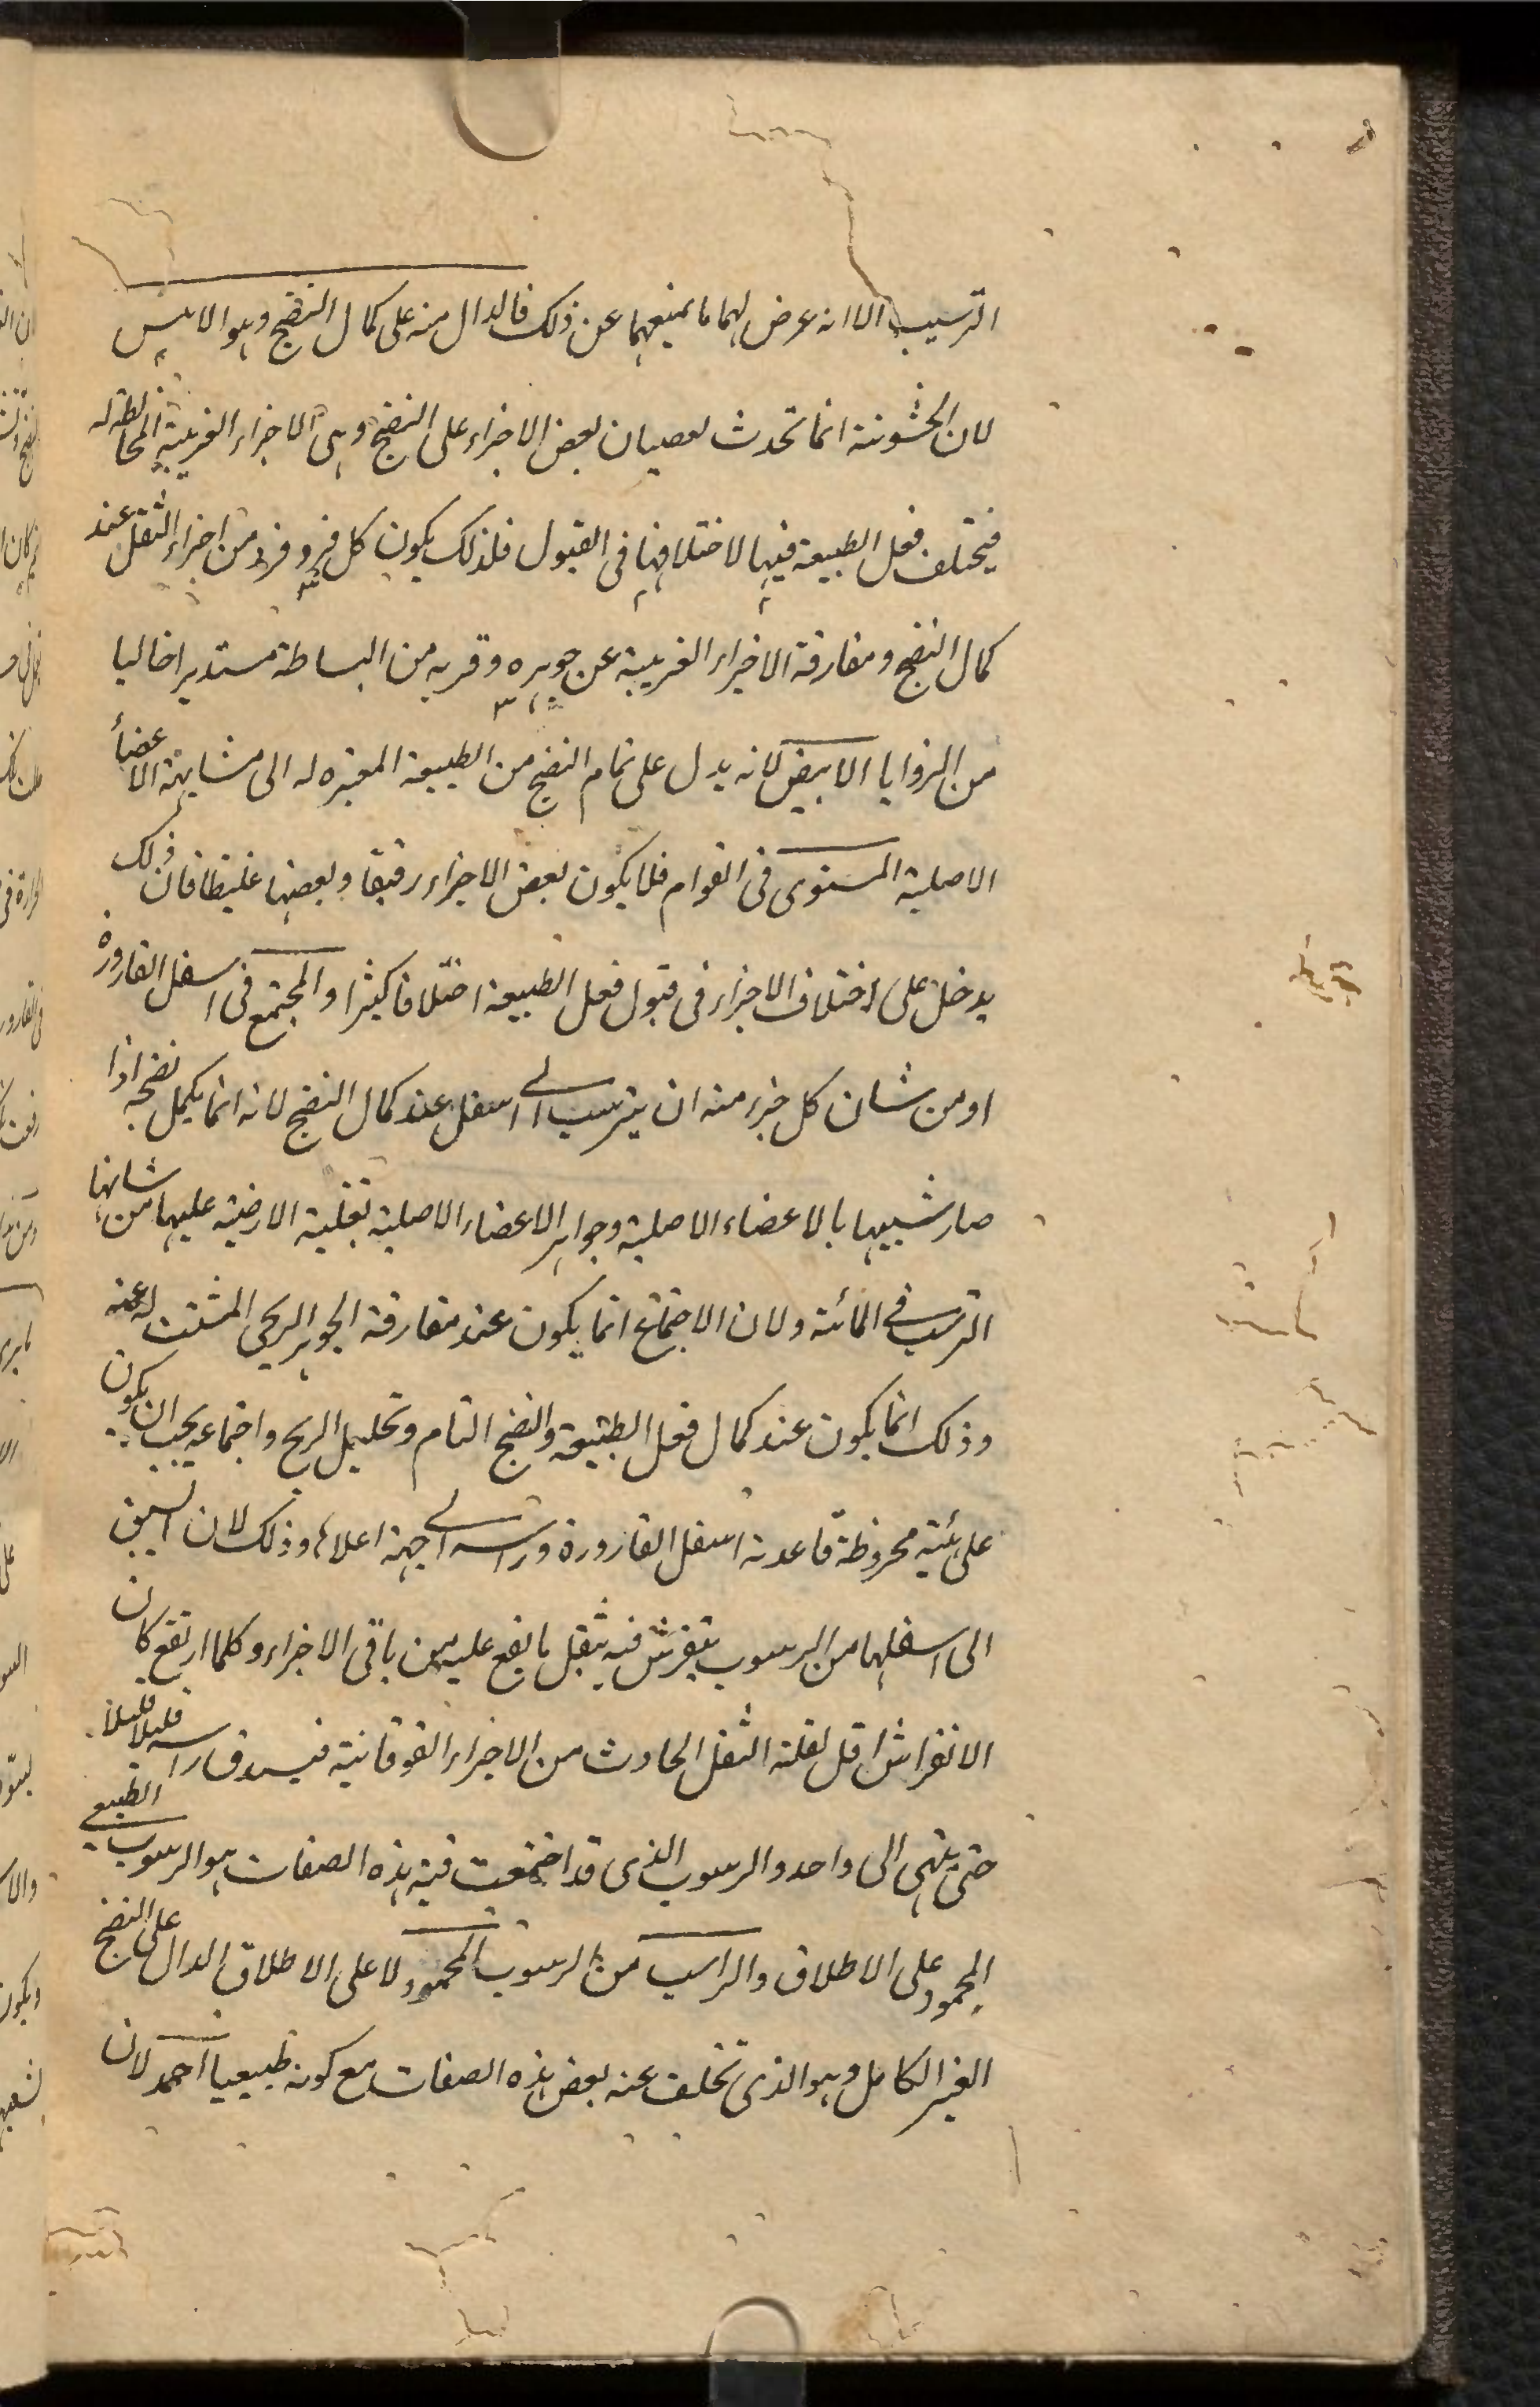 الترسيب الا انه عرض لهما ما يمنعهما عن ذلك فالدال منه على كمال النضج وهو الاملس
لان الخشونة انما تحدث لعصيان بعض الاجزاء على النضج وهى الاجزاء الغريبة المخالطة له
فيختلف فعل الطبيعة فيها لاختلافها فى القبول فلذلك يكون كل فرد فرد من اجزاء الثفل عند
كمال النضج ومفارقة الاجزاء الغريبة عن جوهره وقربه من البساطة مستديرا خاليا
من الزوايا الابيض لانه يدل على تمام النضج من الطبيعة المغيرة له الى مشابهة الاعضاء
الاصلية المستوى فى القوام فلا يكون بعض الاجزاء رقيقا وبعضها غليظا فان ذلك
يدخل على اختلاف الاجزاء فى قبول فعل الطبيعة اختلافا كثيرا والمجتمع فى اسفل القارورة
اذ من شان كل جزء منه ان يترسب الى اسفل عند كمال النضج لانه انما يكمل نضجه اذا
صار شبيها بالاعضاء الاصلية وجواهر الاعضاء الاصلية لغلبة الارضية عليها من شانها
الترسب فى المائية ولان الاجتماع انما يكون عند مفارقة الجوهر الريحى المشتت له عنه
وذلك انما يكون عند كمال فعل الطبيعة والنضج التام وتحليل الريح واجتماعه يجب ان يكون
على هيئة مخروطة قاعدته اسفل القارورة وراسه الى جهة اعلاها وذلك لان السابق
الى اسفلها من الرسوب يتفرش فيه بثقل ما يقع عليه من باقى الاجزاء وكلما ارتفع كان
الانفراش اقل لقلة الثقل الحادث من الاجزاء الفوقانية فيستدق راسه قليلا قليلا
حتى ينتهى الى واحد والرسوب الذى قد اجتمعت فيه هذه الصفات هو الرسوب الطبيعى
المحمود على الاطلاق والراسب من الرسوب المحمود لا على الاطلاق الدال على النضج
الغير الكامل وهو الذى تخلف عنه بعض هذه الصفات مع كونه طبيعيا احمد لان